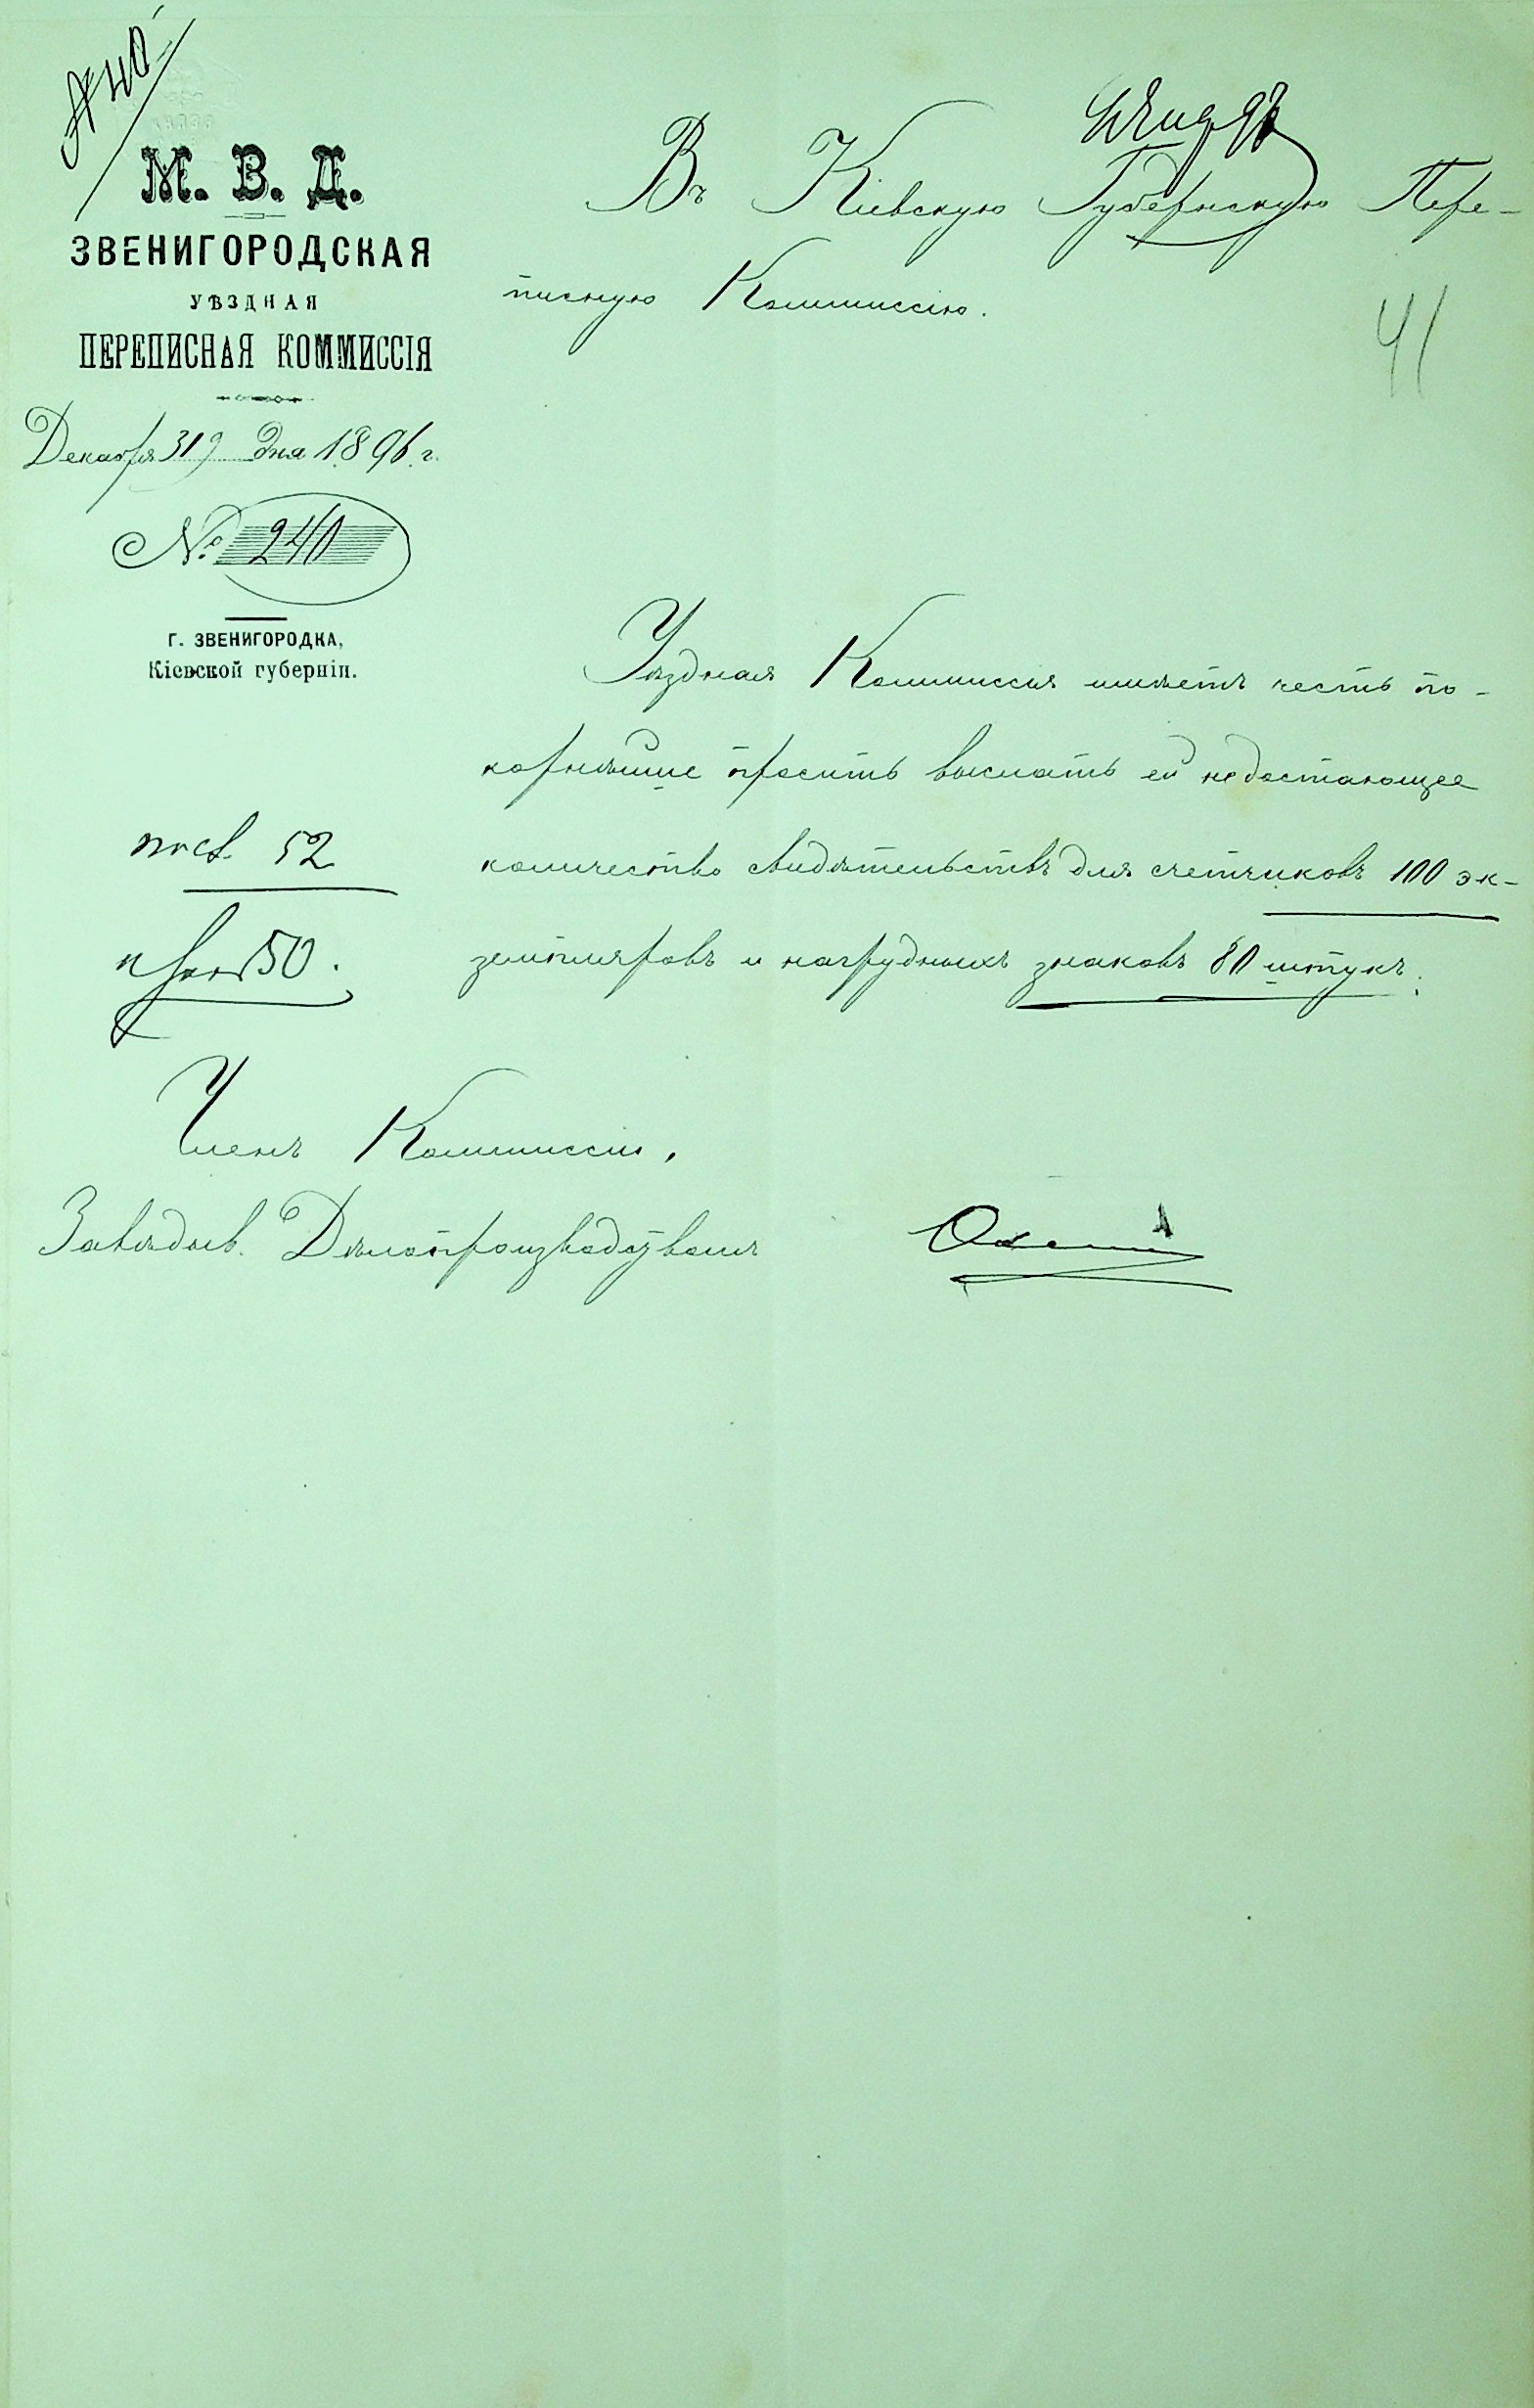 № 40
М. В. Д.
ЗВЕНИГОРОДСКАЯ
УѢЗДНАЯ
ПЕРЕПИСНАЯ КОММИССІЯ
Декабря 31 дня 1896 г.
№ 240
Г. ЗВЕНИГОРОДКА,
Кіевской губерніи.
Въ Кіевскую Губернскую Пере-
писную Коммиссію.
41
Уѣздная Коммиссія имѣетъ честь по-
корнѣйше просить выслать ей недостающее
количество свидѣтельствъ для счетчиковъ 100 эк-
земпляровъ и нагрудныхъ знаковъ 80 штукъ.
52
50.
Членъ Коммиссіи,
Завѣдыв. Дѣлопроизводствомъ